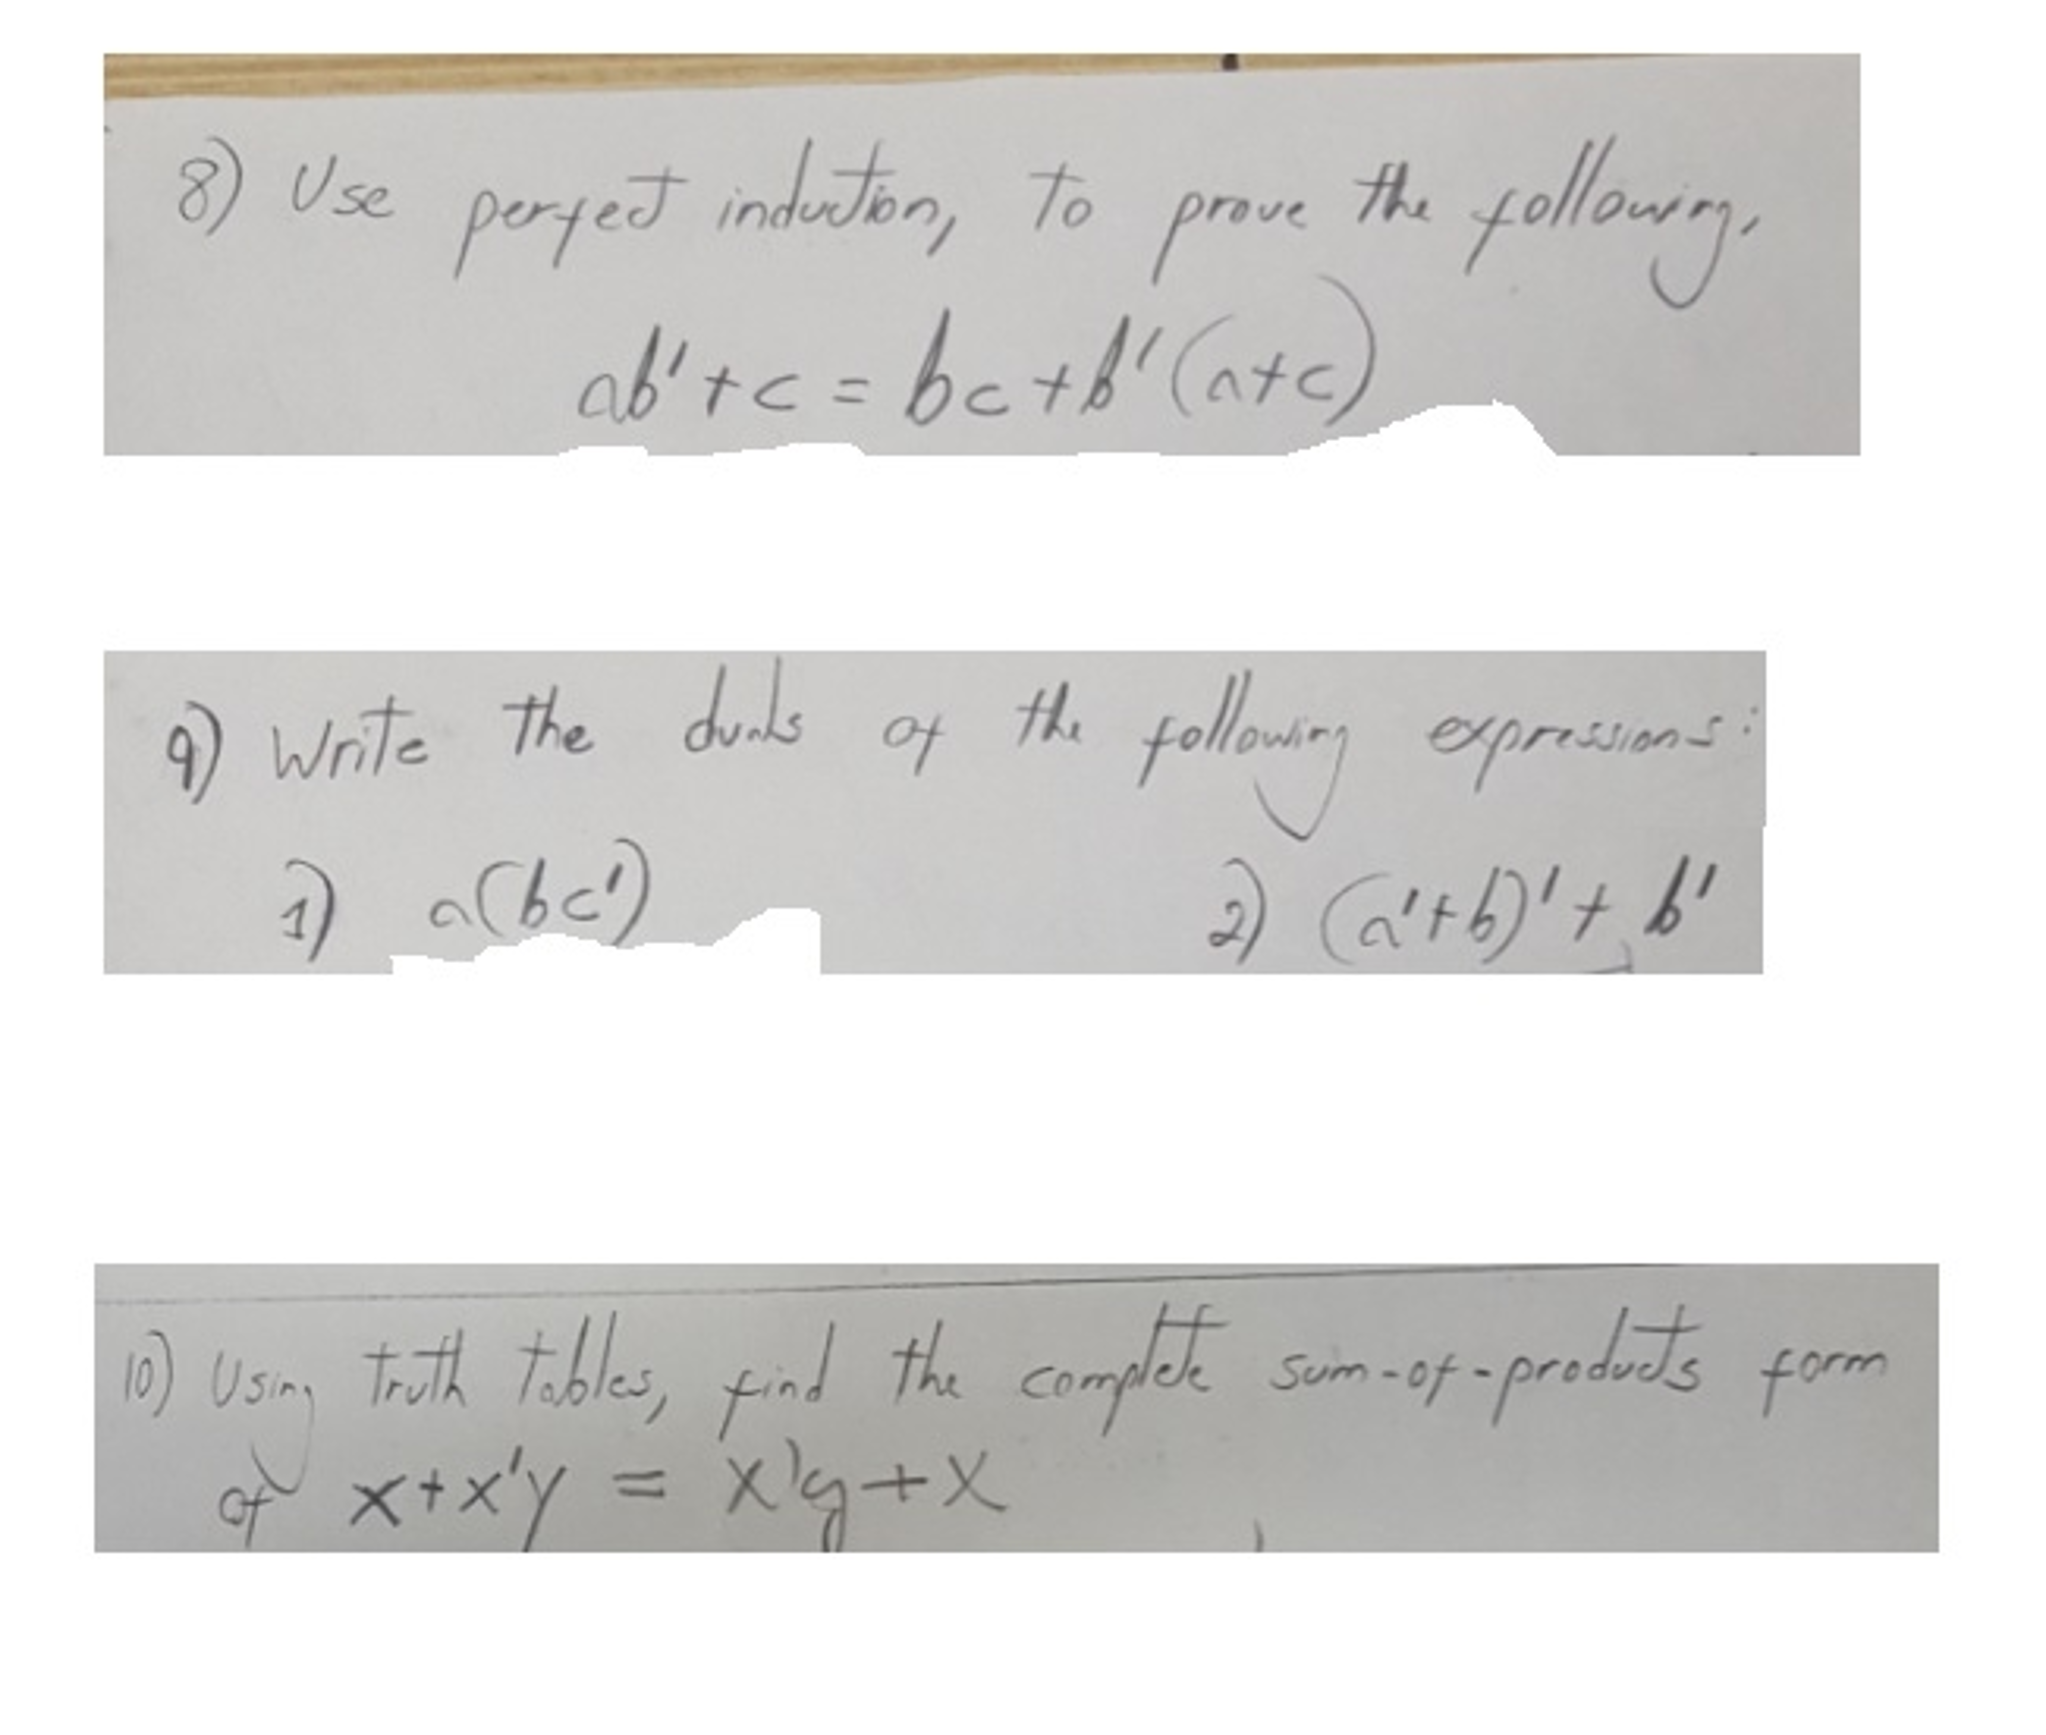 8) Use perfect induction, to prove the following,
ab' + c = bc + b' (a+c)
9) Write the duals of the following expressions:
1) a(bc') 2) (a'+b)' + b'
10) Using truth tables, find the complete sum-of-products form
of x+x'y = x'y+x